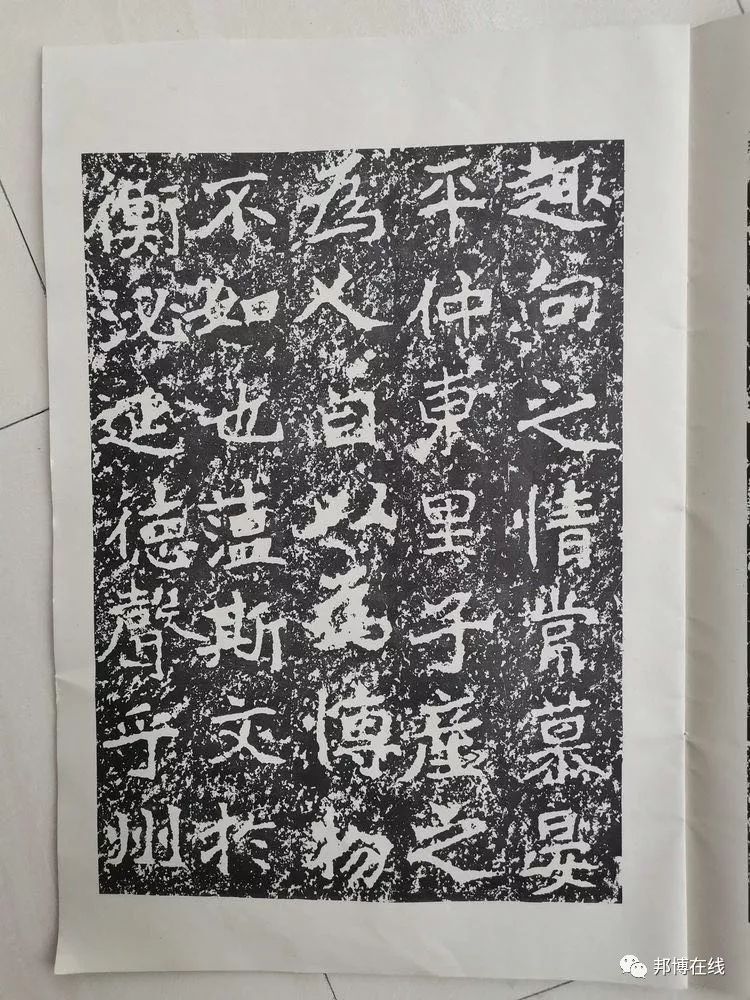 趣向之情常慕晏
平仲東里子產之
為人自以為博物
不如也蕰斯文於
衡泌延德聲乎州
邦博在线